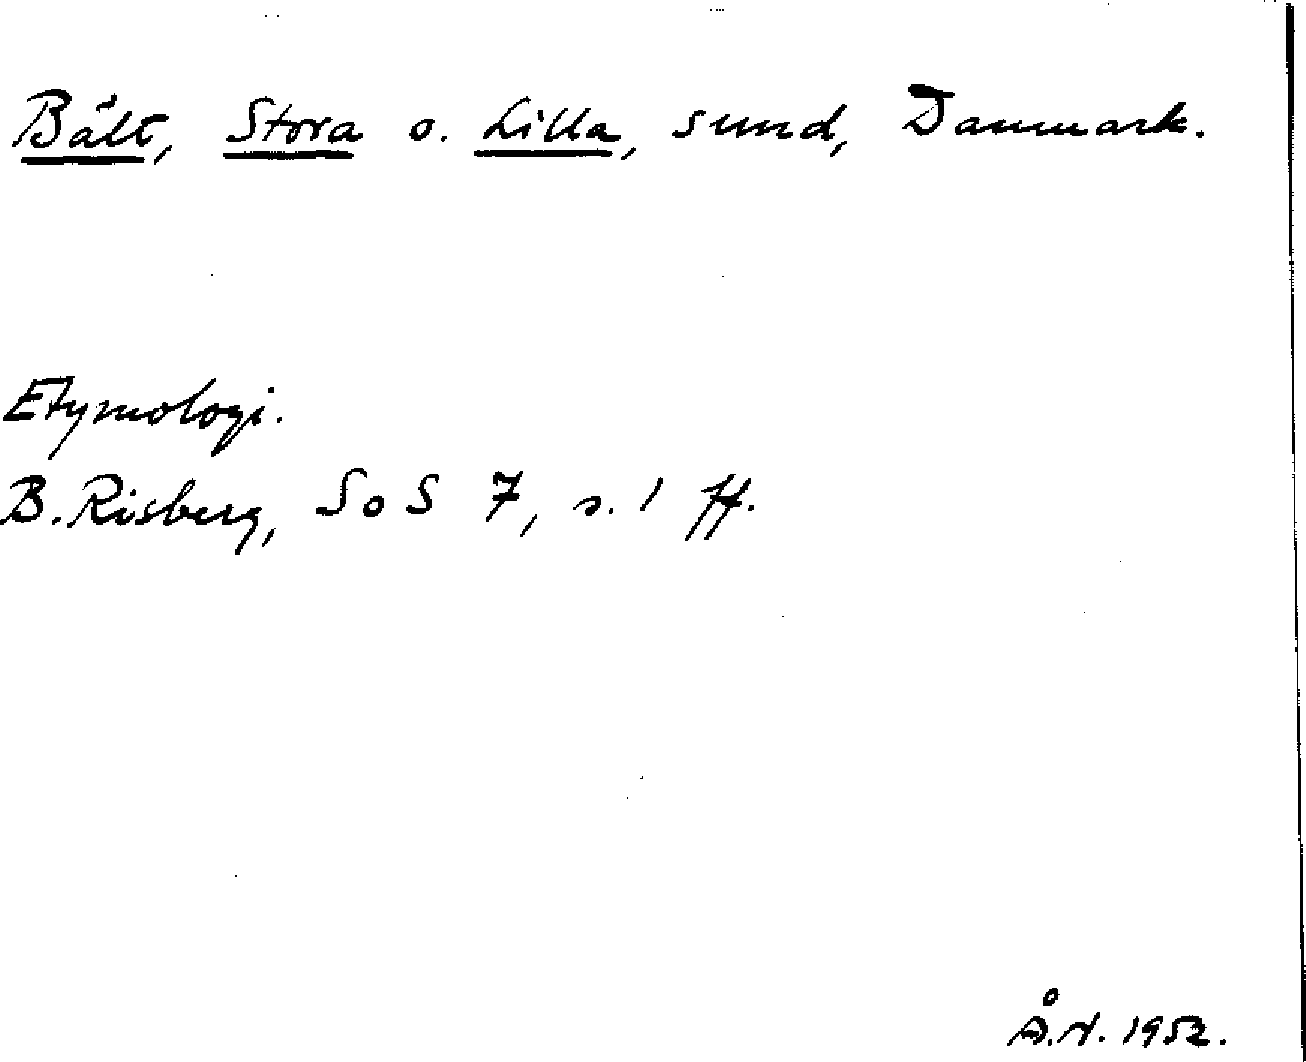 Bält, Stora o. Lilla, sund, Danmark.
Etymologi.
B. Risberg, SoS 7, s. 1 ff.
Å.N. 1952.